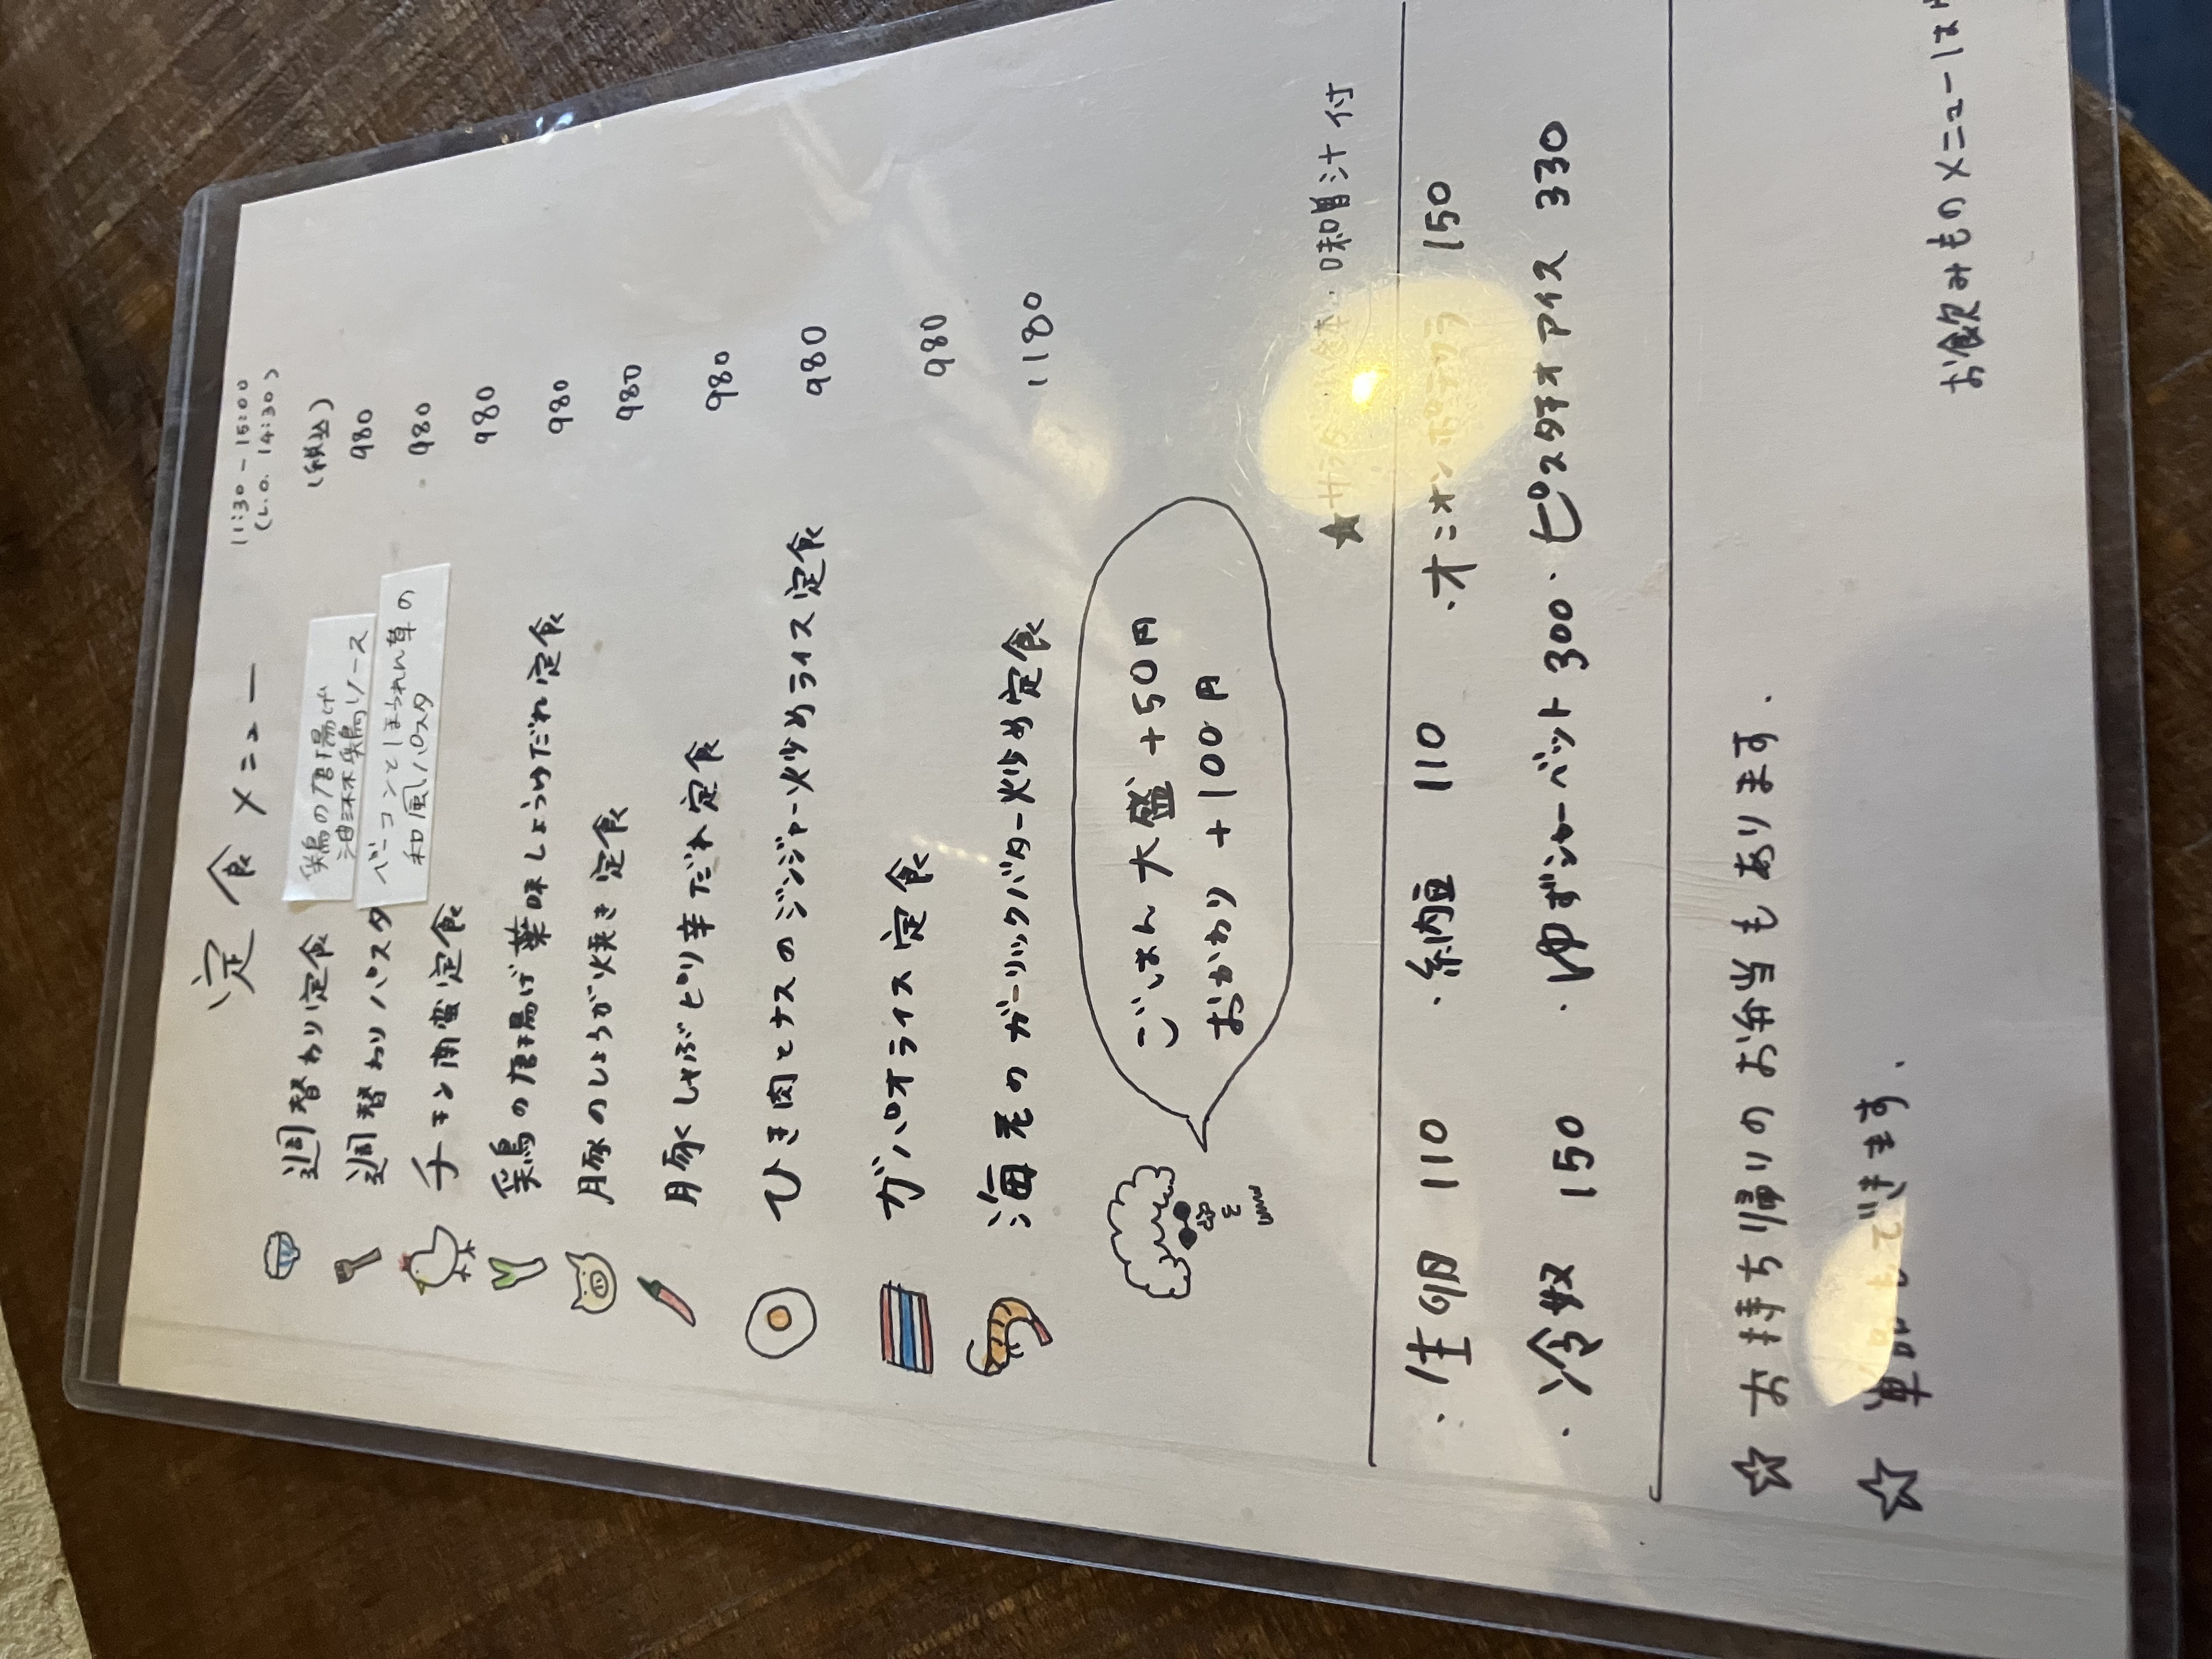 定食メニュー
11:30-15:00
(L.O. 14:30)
(税込)
週替わり定食 鶏の唐揚げ 980
油淋鶏ソース
週替わりパスタ ベーコンとほうれん草の 980
和風パスタ
チキン南蛮定食 980
鶏の唐揚げ薬味しょうゆだれ定食 980
豚のしょうが焼き定食 980
豚しゃぶピリ辛だれ定食 980
ひき肉とナスのジンジャー炒めライス定食 980
ガパオライス定食 980
海老のガーリックバター炒め定食 1180
ごはん大盛+50円
おかわり+100円
★サラダ・ 味噌汁付
・生卵 110 ・納豆 110 ・オニオンポテフラ 150
・冷奴 150 ・ゆずシャーベット 300 ・ピスタチオアイス 330
☆お持ち帰りのお弁当もあります.
☆単品もできます.
お飲みものメニューは